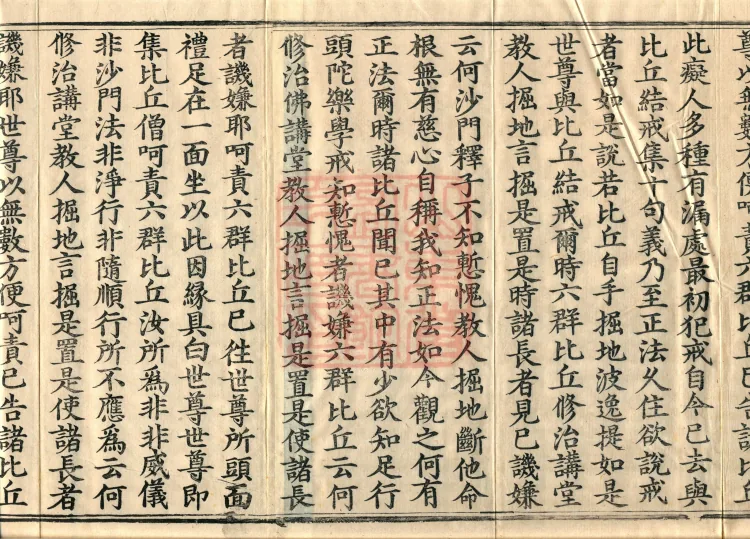 尊以無數方便呵責六群比丘已告諸比丘
此癡人多種有漏處最初犯戒自今已去與
比丘結戒集十句義乃至正法久住欲說戒
者當如是說若比丘自手掘地波逸提如是
世尊與比丘結戒爾時六群比丘修治講堂
教人掘地言掘是置是時諸長者見已譏嫌
云何沙門釋子不知慙愧教人掘地斷他命
根無有慈心自稱我知正法如今觀之何有
正法爾時諸比丘聞已其中有少欲知足行
頭陀樂學戒知慙愧者譏嫌六群比丘云何
修治佛講堂教人掘地言掘是置是使諸長
者譏嫌耶呵責六群比丘已往世尊所頭面
禮足在一面坐以此因緣具白世尊世尊即
集比丘僧呵責六群比丘汝所爲非非威儀
非沙門法非淨行非隨順行所不應爲云何
修治講堂教人掘地言掘是置是使諸長者
譏嫌耶世尊以無數方便呵責已告諸比丘